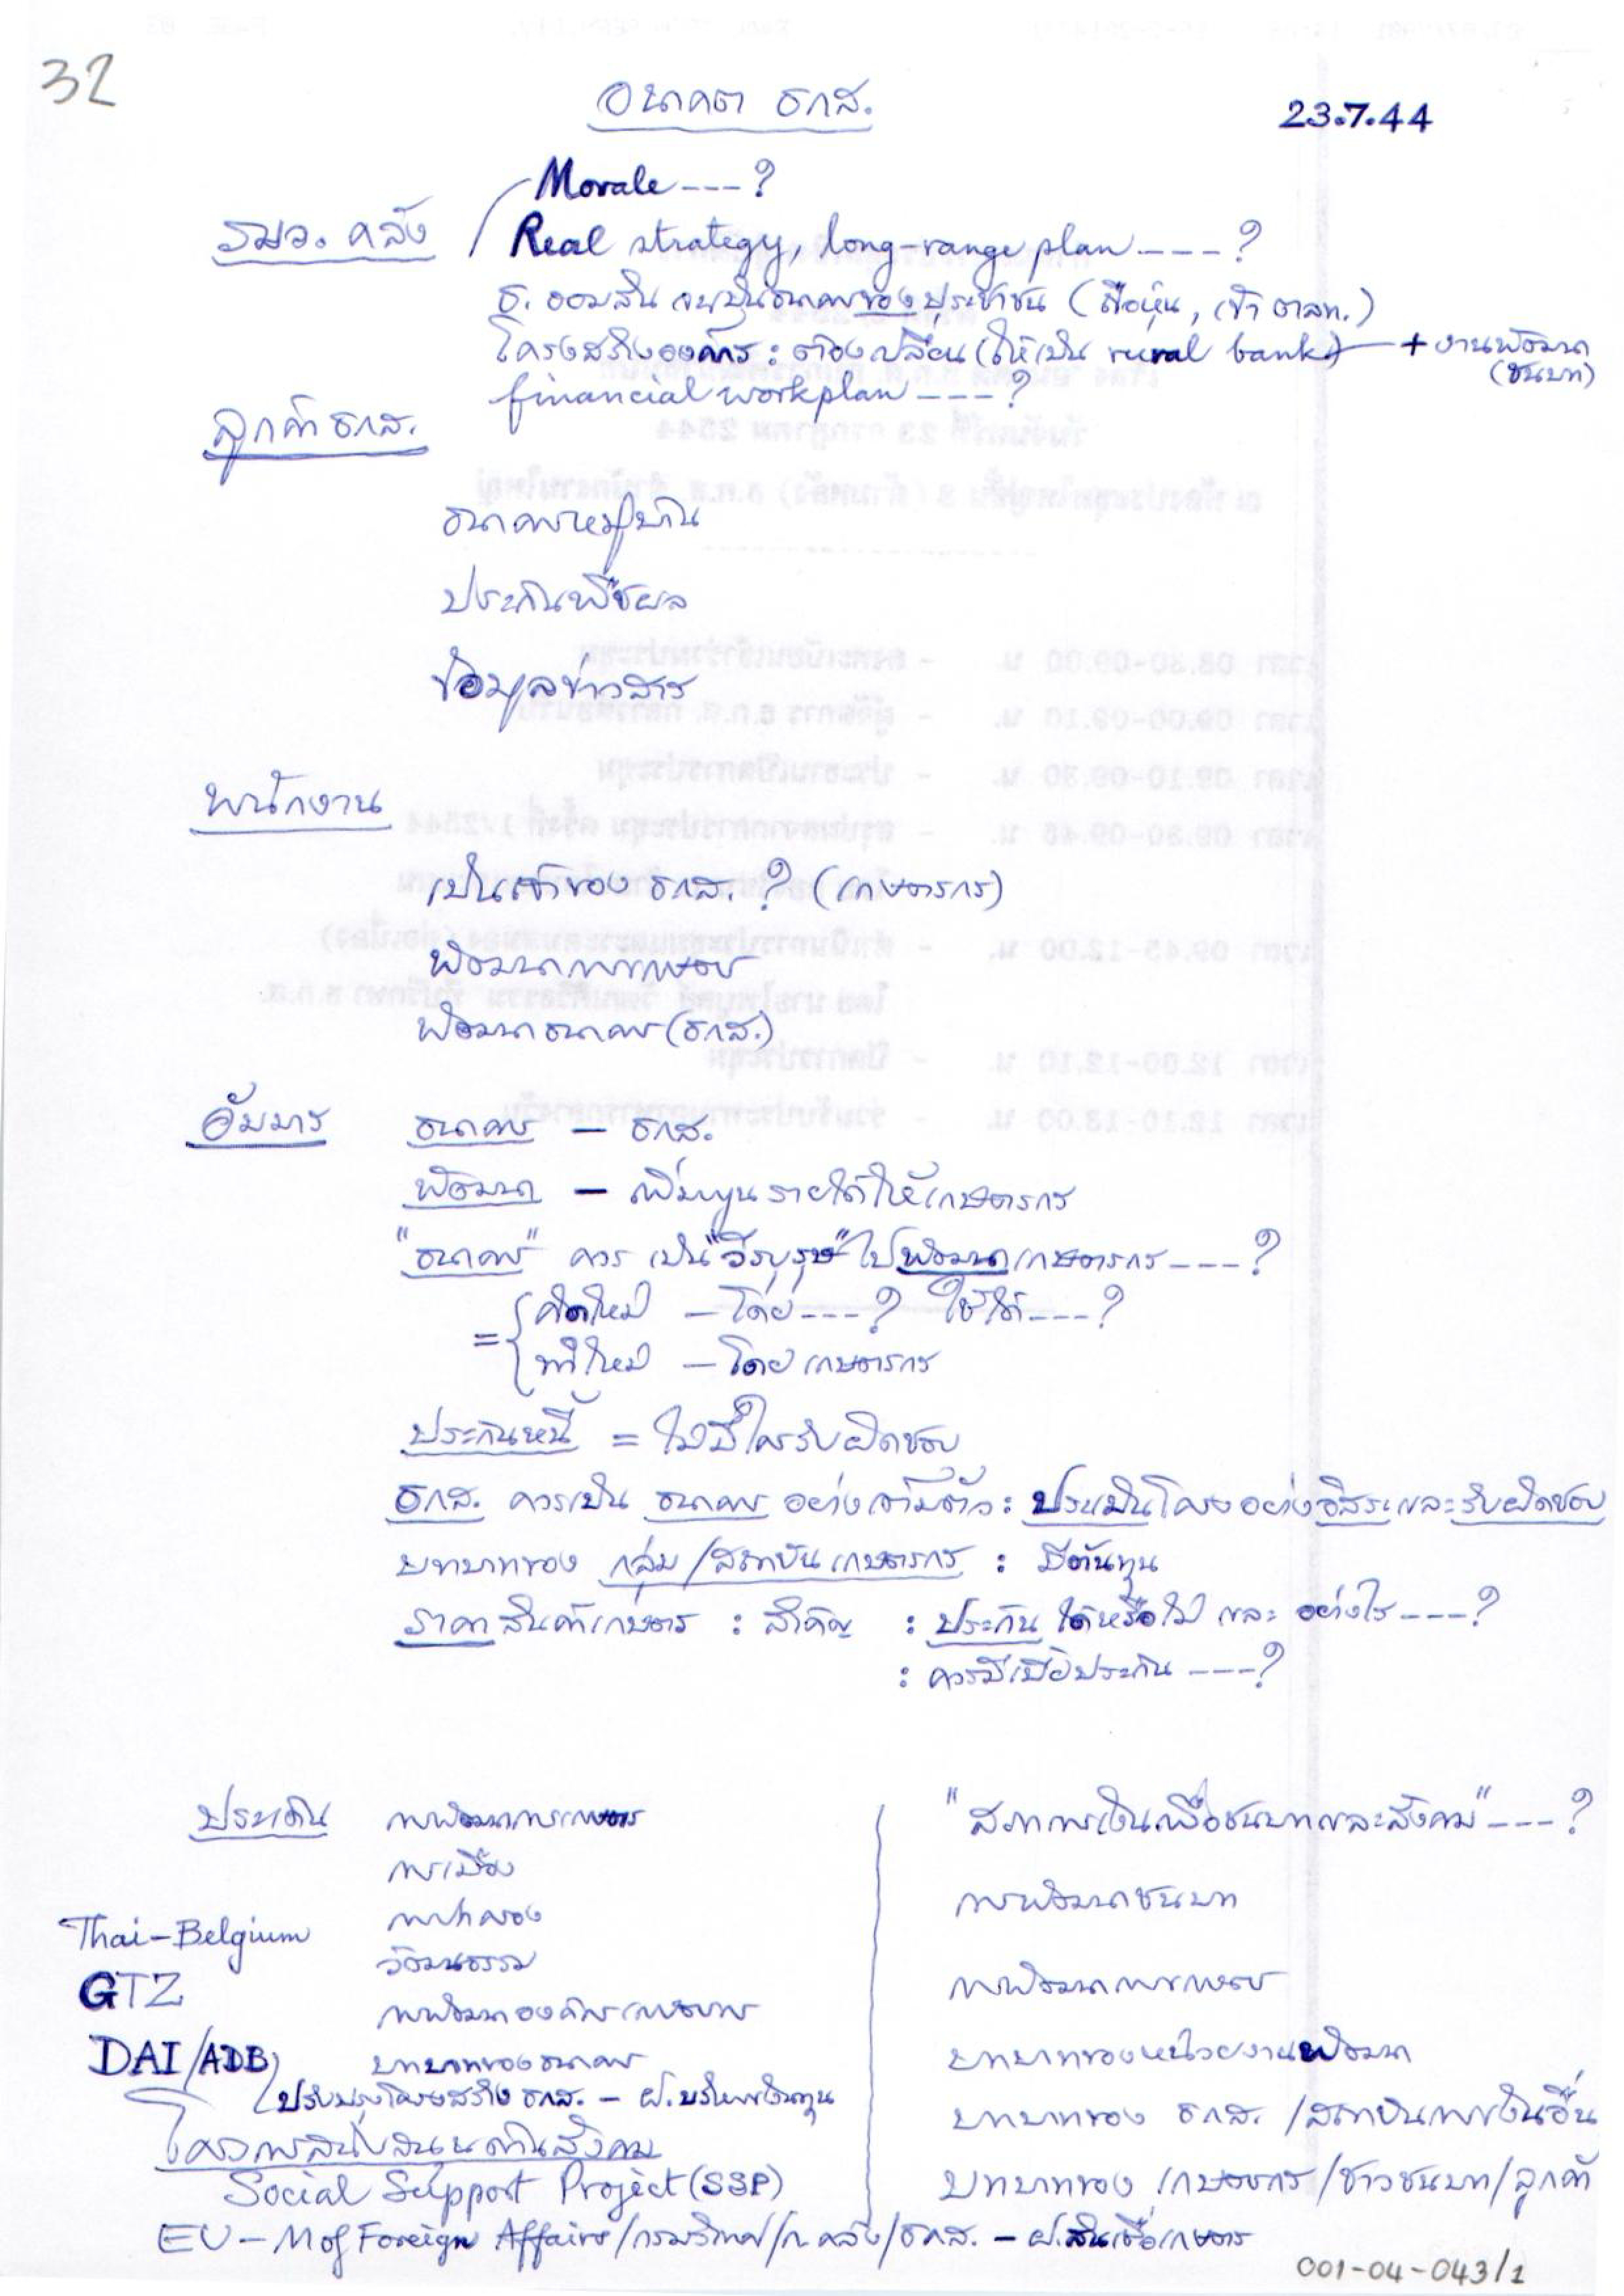 32
อนาคต ธกส.
23.7.44
Morale ---?
รมว. คลัง
Real strategy, long-range plan ---?
ธ. ออมสิน จะเป็นธนาคารของประชาชน (ถือหุ้น, เข้า ตลท.)
โครงสร้างองค์กร : ต้องเปลี่ยน (ให้เป็น rural bank) + งานพัฒนา
(ชนบท)
financial workplan ---?
ลูกค้า ธกส.
ธนาคารหมู่บ้าน
ประกันพืชผล
ข้อมูลข่าวสาร
พนักงาน
เป็นเจ้าของ ธกส. ? (เกษตรกร)
พัฒนาการเกษตร
พัฒนาธนาคาร (ธกส.)
อัมมาร
ธนาคาร – ธกส.
พัฒนา – เพิ่มพูนรายได้ให้เกษตรกร
"ธนาคาร" ควร เป็น "วีรบุรุษ" ไปพัฒนาเกษตรกร ---?
= { คิดใหม่ – โดย ---? ใช้ได้ ---?
ทำใหม่ – โดยเกษตรกร
ประกันหนี้ = ไม่มีใครรับผิดชอบ
ธกส. ควรเป็น ธนาคาร อย่างเต็มตัว : ประเมินโครงอย่างอิสระและรับผิดชอบ
บทบาทของ กลุ่ม/สถาบันเกษตรกร : มีต้นทุน
ราคาสินค้าเกษตร : สำคัญ : ประกัน ได้หรือไม่ และ อย่างไร ---?
: ควรมีเบี้ยประกัน ---?
ประเด็น
การพัฒนาการเกษตร
การเมือง
การปกครอง
วัฒนธรรม
การพัฒนาองค์กรเกษตรกร
บทบาทของธนาคาร
"สภาการเงินเพื่อชนบทและสังคม" ---?
การพัฒนาชนบท
การพัฒนาการเกษตร
บทบาทของหน่วยงานพัฒนา
บทบาทของ ธกส. /สถาบันการเงินอื่น
บทบาทของ เกษตรกร/ชาวชนบท/ลูกค้า
Thai-Belgium
GTZ
DAI/ADB
ปรับปรุงโครงสร้าง ธกส. – ฝ.บริหารเงินทุน
โครงการสนับสนุนด้านสังคม
Social Support Project (SSP)
EU – M of Foreign Affairs/กรมวิเทศ/ก.คลัง/ธกส. – ฝ.สินเชื่อเกษตร
001-04-043/1